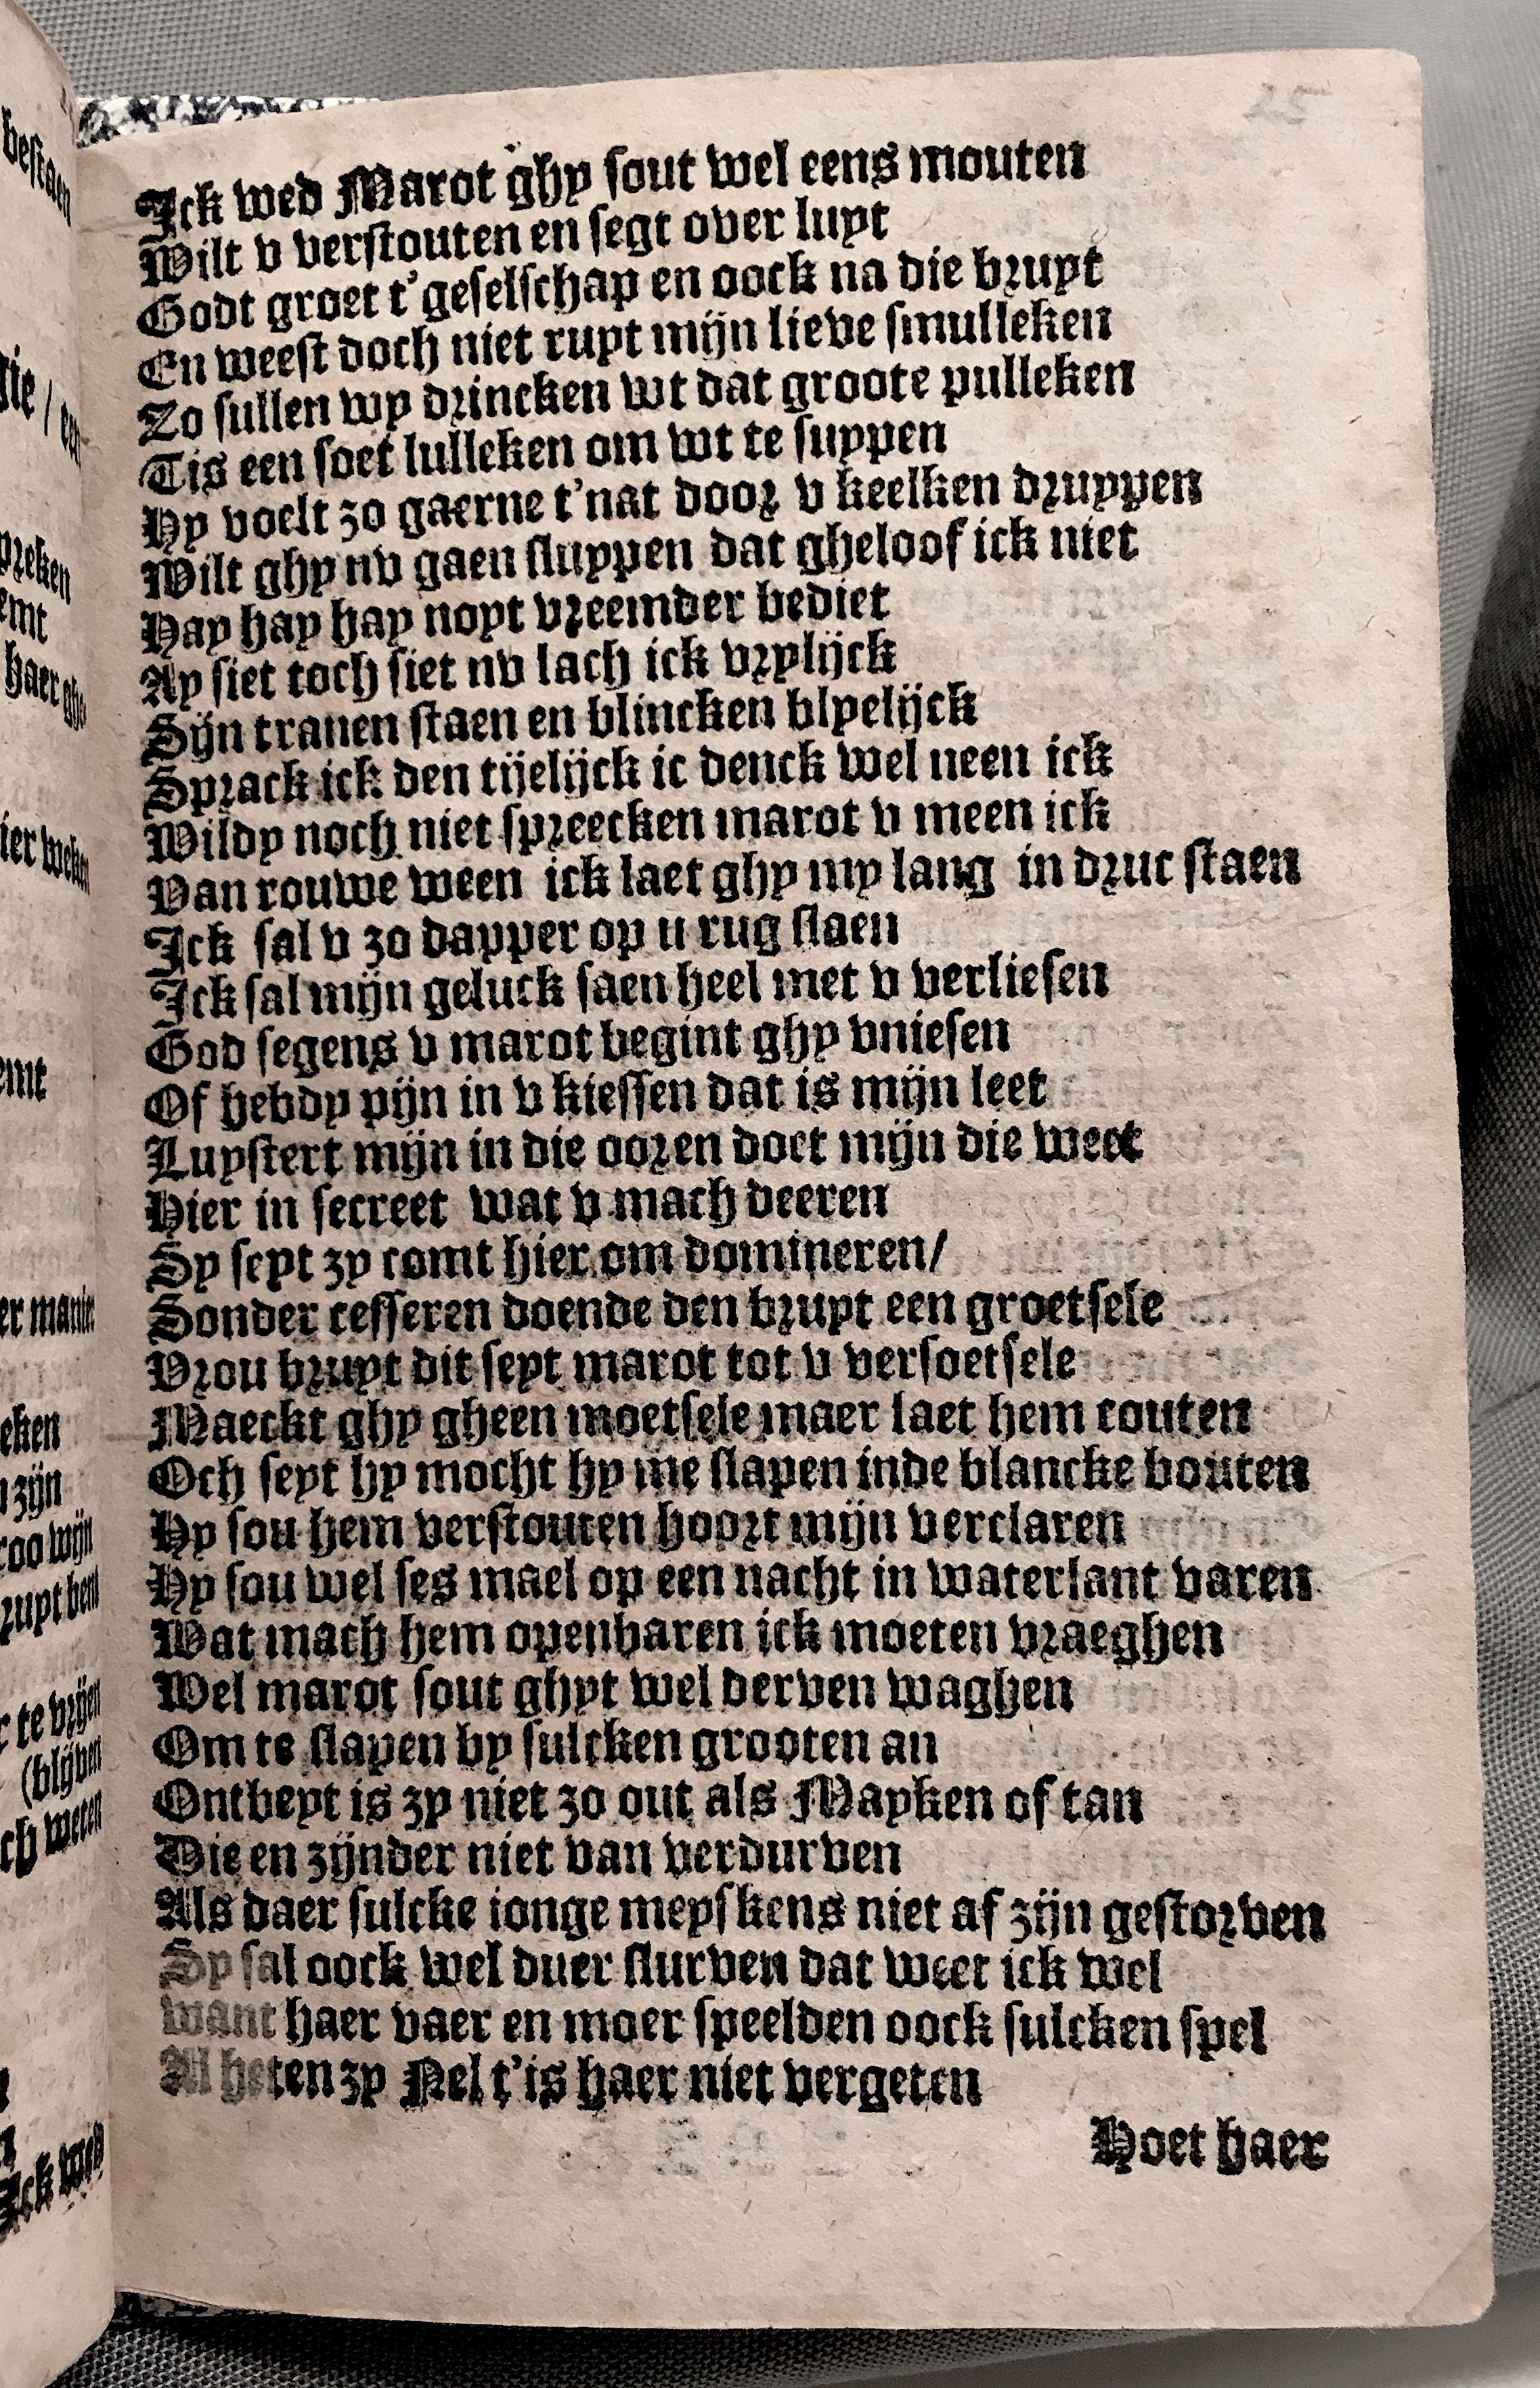 25
Ick wed Marot ghy sout wel eens mouten
Wilt v verstouten en segt over luyt
Godt groet t'geselschap en oock na die bruyt
En weest doch niet ruyt mijn lieve smulleken
Zo sullen wy drincken wt dat groote pulleken
Tis een soet lulleken om wt te suypen
Hy voelt zo gaerne t'nat door v keelken druypen
Wilt ghy nv gaen sluypen dat gheloof ick niet
Hay hay hay noyt vreemder bediet
Ay siet toch siet nv lach ick vrylijck
Sijn tranen staen en blincken blyelijck
Sprack ick den tijelijck ic denck wel neen ick
Wildy noch niet spreecken marot v meen ick
Van rouwe ween ick laet ghy my lang in druc staen
Ick sal v zo dapper op u rug slaen
Ick sal mijn geluck saen heel met v verliesen
God segens v marot begint ghy vniesen
Of hebdy pijn in v kiessen dat is mijn leet
Luystert mijn in die ooren doet mijn die weet
Hier in secreet wat v mach deeren
Sy seyt zy comt hier om domineren/
Sonder cesseren doende den bruyt een groetsele
Vrou bruyt dit seyt marot tot v versoetsele
Maeckt ghy gheen moetsele maer laet hem couten
Och seyt hy mocht hy me slapen inde blancke bouten
Hy sou hem verstouten hoort mijn verclaren
Hy sou wel ses mael op een nacht in waterlant varen
Wat mach hem openbaren ick moeten vraeghen
Wel marot sout ghyt wel derven waghen
Om te slapen by sulcken grooten an
Ontbeyt is zy niet zo out als Mayken of tan
Die en zijnder niet van verdurven
Als daer sulcke ionge meyskens niet af zijn gestorven
Sy sal oock wel duer slurven dat weet ick wel
want haer vaer en moer speelden oock sulcken spel
Al heten zy Nel t'is haer niet vergeten
Hoet haer